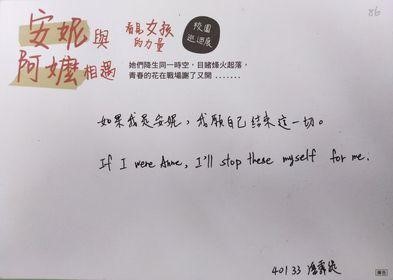 86
安妮與
阿嬤相遇
看見女孩
的力量
校園
巡迴展
她們降生同一時空，目睹烽火起落，
青春的花在戰場謝了又開 .......
如果我是安妮，我願自己結束這一切。
If I were Anne, I'll stop these myself for me.
40133
廣告